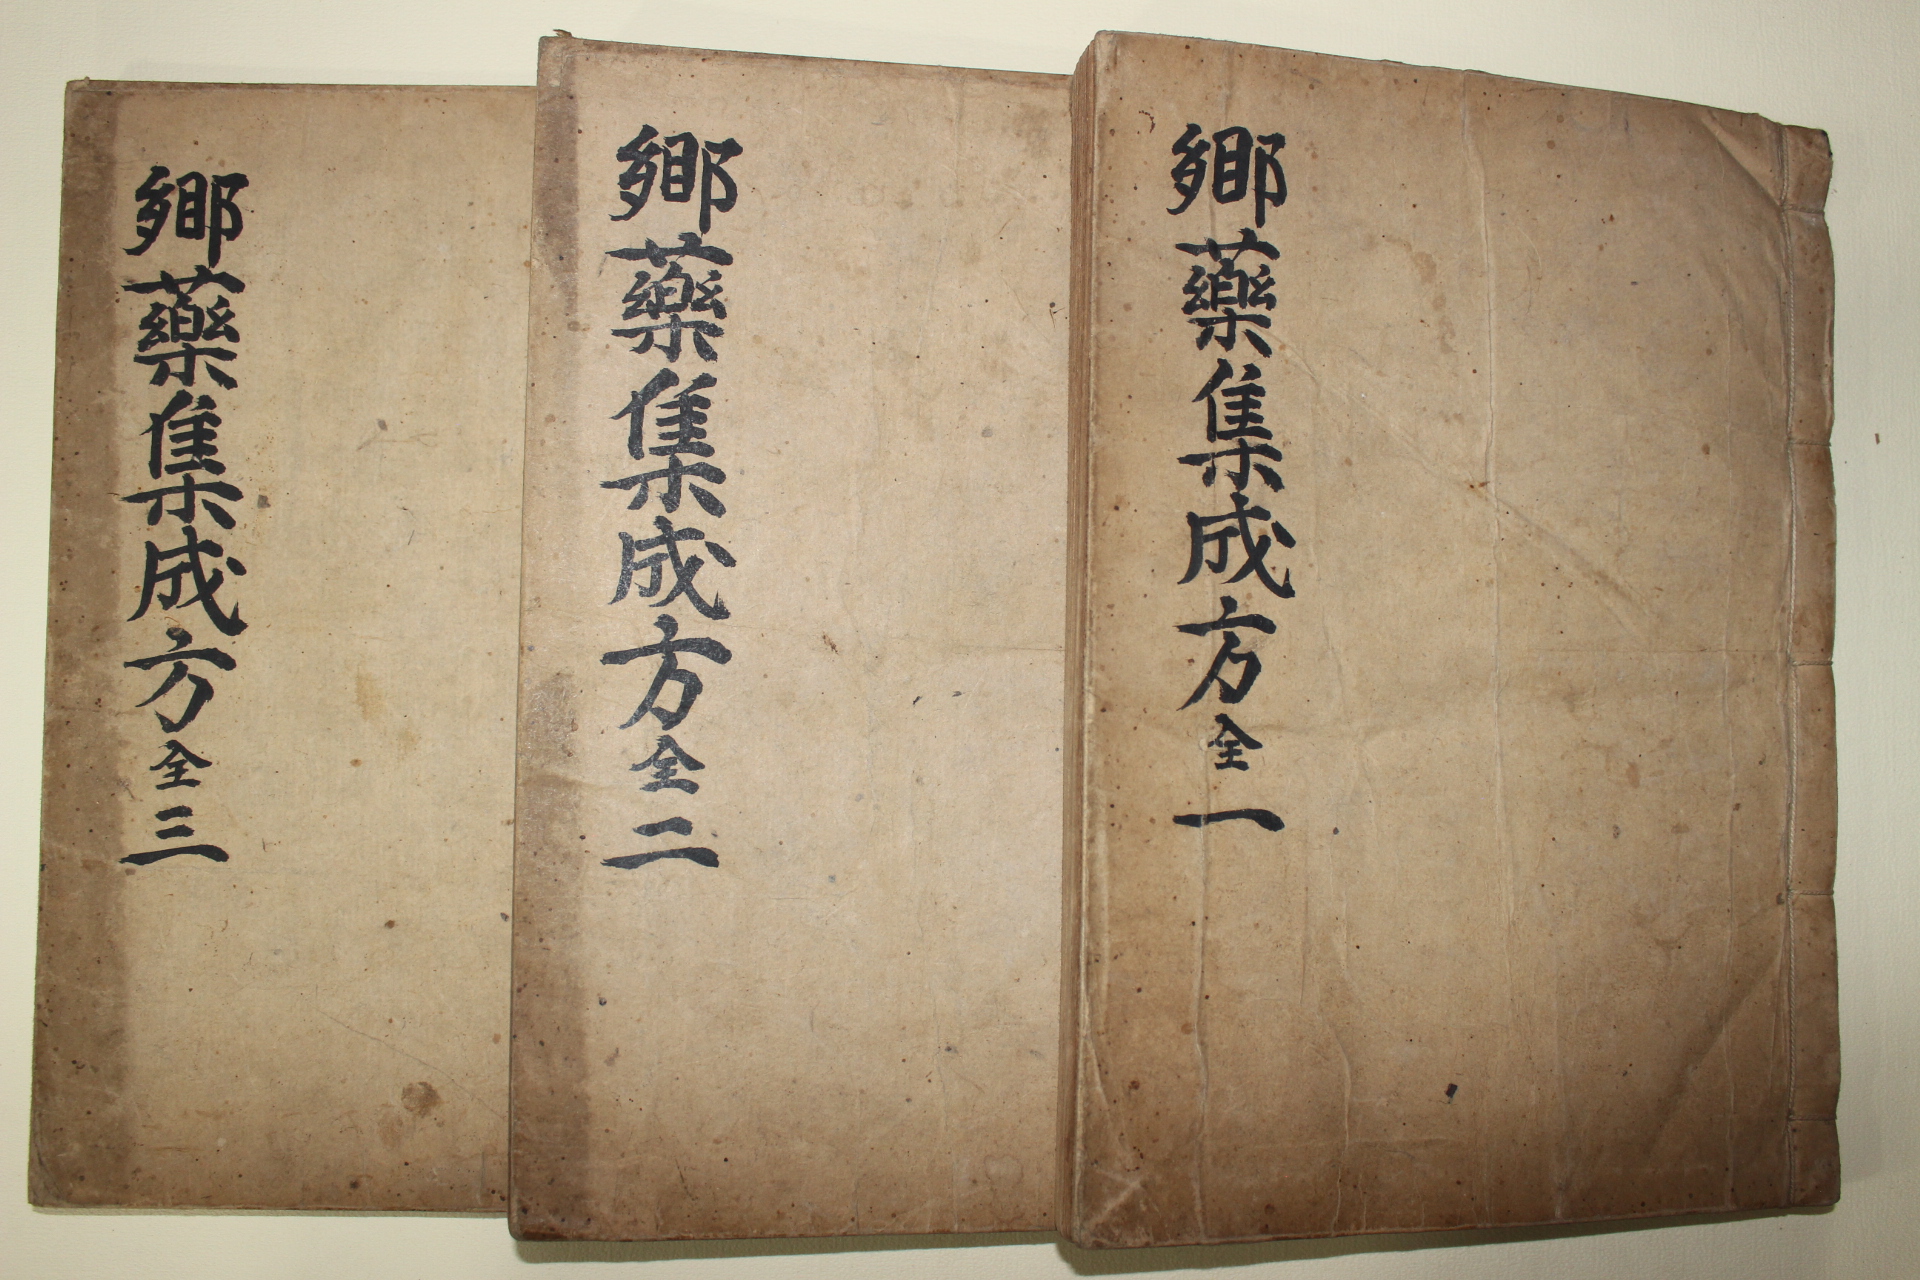 鄕藥集成方全一
鄕藥集成方全二
鄕藥集成方全三